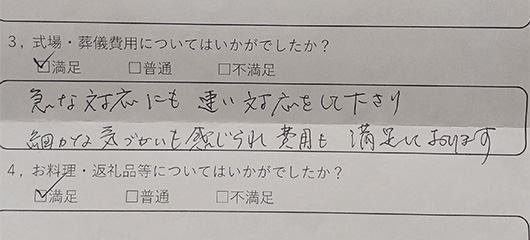 3, 式場・葬儀費用についてはいかがでしたか？
☑満足 □普通 □不満足
急な対応にも 速い対応をして下さり
細かな気づかいも感じられ 費用も 満足しております
4, お料理・返礼品等についてはいかがでしたか？
☑満足 □普通 □不満足